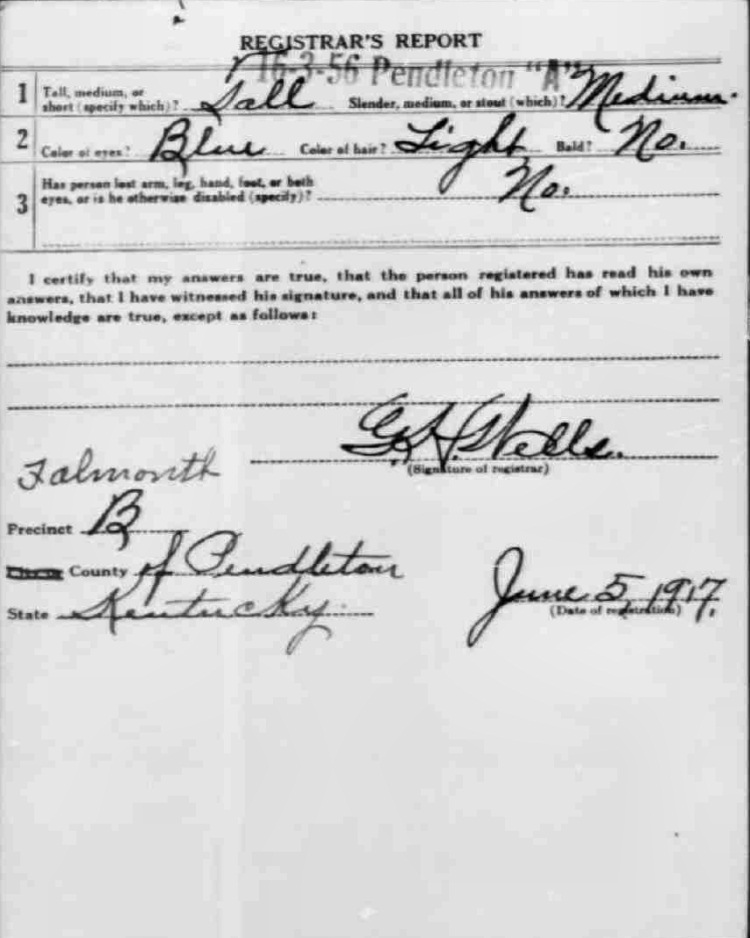 REGISTRAR'S REPORT
16-3-56 Pendleton "A"
1 Tall, medium, or short (specify which)? Tall Slender, medium, or stout (which)? Medium.
2 Color of eyes? Blue Color of hair? Light Bald? No.
3 Has person lost arm, leg, hand, foot, or both
eyes, or is he otherwise disabled (specify)? No.
I certify that my answers are true, that the person registered has read his own
answers, that I have witnessed his signature, and that all of his answers of which I have
knowledge are true, except as follows:
G. H. Wells.
(Signature of registrar)
Falmouth
Precinct B
County of Pendleton
State Kentucky.
June 5, 1917,
(Date of registration)